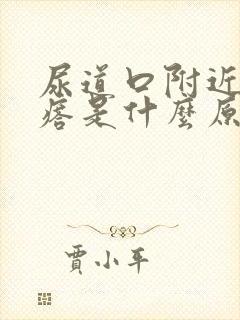 尿道口附近
痞是什麼原
賈小平